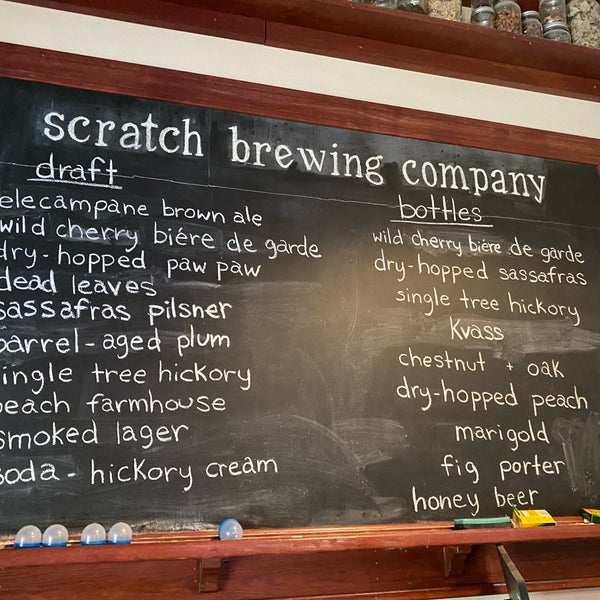 scratch brewing company
draft
elecampane brown ale
wild cherry biére de garde
dry-hopped paw paw
dead leaves
sassafras pilsner
barrel-aged plum
single tree hickory
peach farmhouse
smoked lager
soda - hickory cream
bottles
wild cherry biére de garde
dry-hopped sassafras
single tree hickory
Kvass
chestnut + oak
dry-hopped peach
marigold
fig porter
honey beer